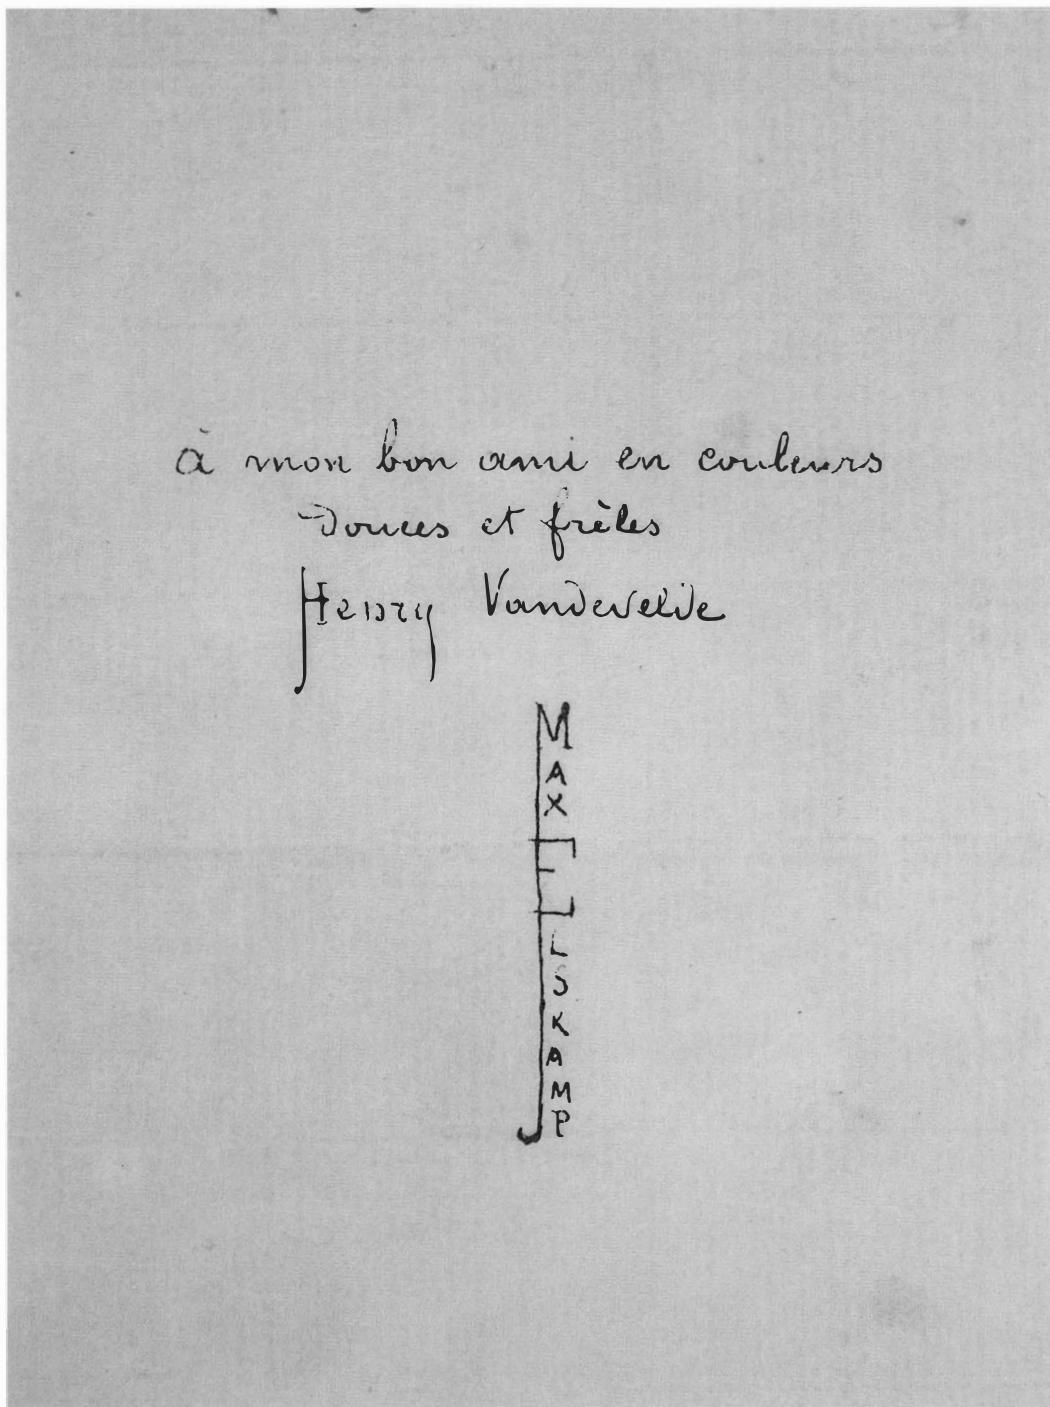 à mon bon ami en couleurs
douces et frêles
Henry Vandevelde
MAX ELSKAMP